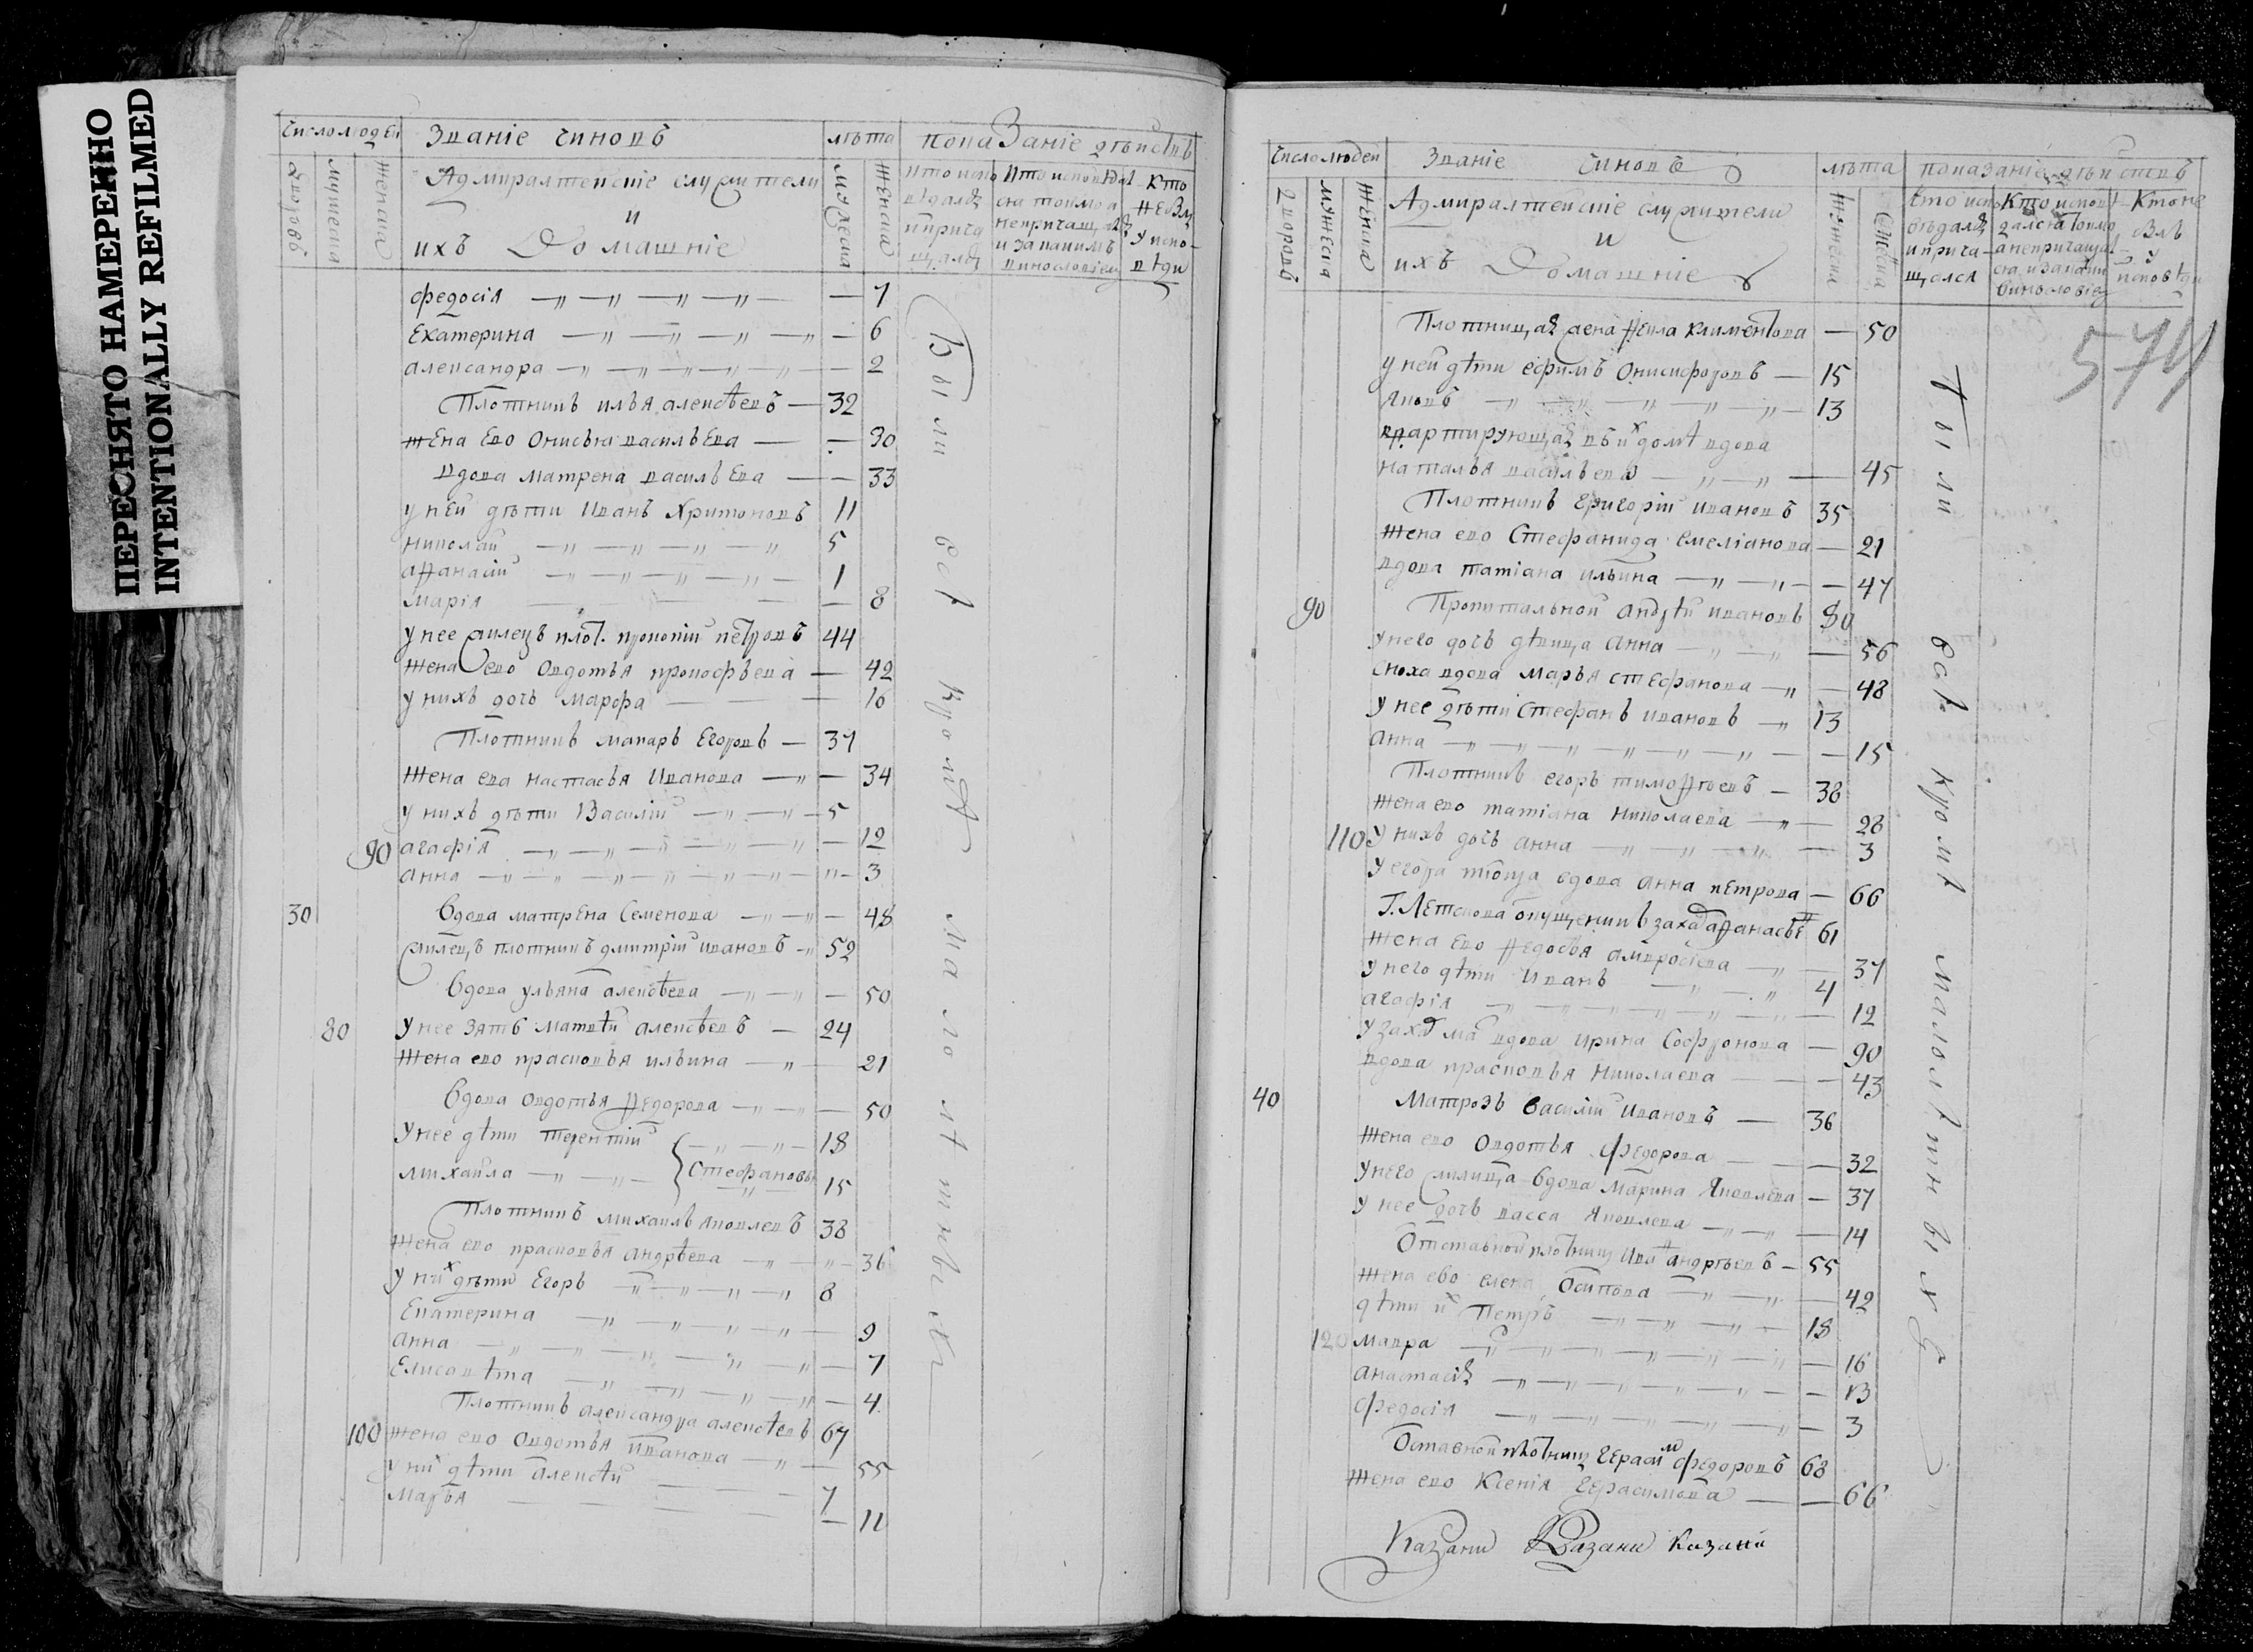 ПЕРЕСНЯТО НАМЕРЕННО
INTENTIONALLY REFILMED
число людей
Званіе чиновъ
лѣта
показаніе дѣиствъ
дворовъ
мужеска
женска
Адмиралтейскіе служители
и
ихъ Домашніе
мужеска
женска
кто испо
вѣдалъ
и прича
щалъ
кто исповѣдал
ся токмо а
непричащалъ
и за какимъ
винословіем
Кто
не былъ
у испо-
вѣди
федосія — 7
Екатерина — 6
александра — 2
Плотникъ илья алексѣевъ — 32
жена ево Онисья васильева — 30
вдова матрена васильева — 33
у ней дѣти Иванъ Хритоновъ 11
николай 5
аѳанасій 1
марія — 8
у нее жилецъ плот. прокопій петровъ 44
жена ево овдотья прокофьева — 42
у нихъ дочь марфа — 16
Плотникъ макаръ Егоровъ — 37
жена ева настасья Иванова — 34
у нихъ дѣти Василій — 5
90 агафія — 12
анна — 3
30 вдова матрена Семенова — 48
жилецъ плотникъ дмитрій ивановъ 52
вдова ульяна алексѣева — 50
80 у нее зять матвѣй алексѣевъ — 24
жена ево прасковья ильина — 21
вдова овдотья Ѳедорова — 50
у нее дѣти терентій — 18
михайла — Стефановы 15
Плотникъ михаилъ яковлевъ 38
жена ево прасковья андрѣева — 36
у них дѣти Егоръ 8
Екатерина — 9
анна — 7
Елисавѣта — 4
Плотникъ александра алексѣевъ 67
100 жена ево овдотья иванова — 55
у них дѣти алексѣй 7
марья — 11
Были всѣ кромѣ малолѣтныхъ
число людей
Званіе чиновъ
лѣта
показаніе дѣйствъ
дворовъ
мужеска
женска
Адмиралтейскіе служители
и
ихъ Домашніе
мужеска
женска
кто испо
вѣдалъ
и прича-
щался
Кто испові
дался токмо
а непричаща
ся и за каким
винословіем
Кто не
былъ
у
исповѣди
574
Плотница жена Ѳекла климентова — 50
у ней дѣти ефимъ Онисифоровъ — 15
яковъ — 13
квартирующая въ их домѣ вдова
наталья васильева — 45
Плотникъ Григорій ивановъ 35
жена ево Стефанида емеліанова — 21
вдова татіана ильина — 47
90 Пропитальной андрѣй ивановъ 80
у него дочь дѣвица анна — 56
сноха вдова марья стефанова — 48
у нее дѣти Стефанъ ивановъ 13
анна — 15
Плотникъ егоръ тимоѳѣевъ — 38
жена ево татіана николаева — 28
110 у нихъ дочь анна — 3
у егора тіоща вдова анна петрова — 66
61
жена ево Ѳедосья амвросіева — 37
у него дѣти иванъ 4
агафія — 12
вдова ирина Софронова — 90
вдова прасковья николаева — 43
40 Матрозъ василій ивановъ — 36
жена ево овдотья федорова — 32
у него жилица вдова марина яковлева — 37
у нее дочь васса яковлева — 14
Отставной плотник Иван андрѣевъ — 55
жена ево елена Осипова — 42
дѣти их Петръ — 18
120 мавра — 16
анастасія — 13
федосія — 3
Оставной плотник Герасим федоровъ 68
жена ево Ксенія Герасимова — 66
Были всѣ кромѣ малолѣтныхъ
Казани Казани казани